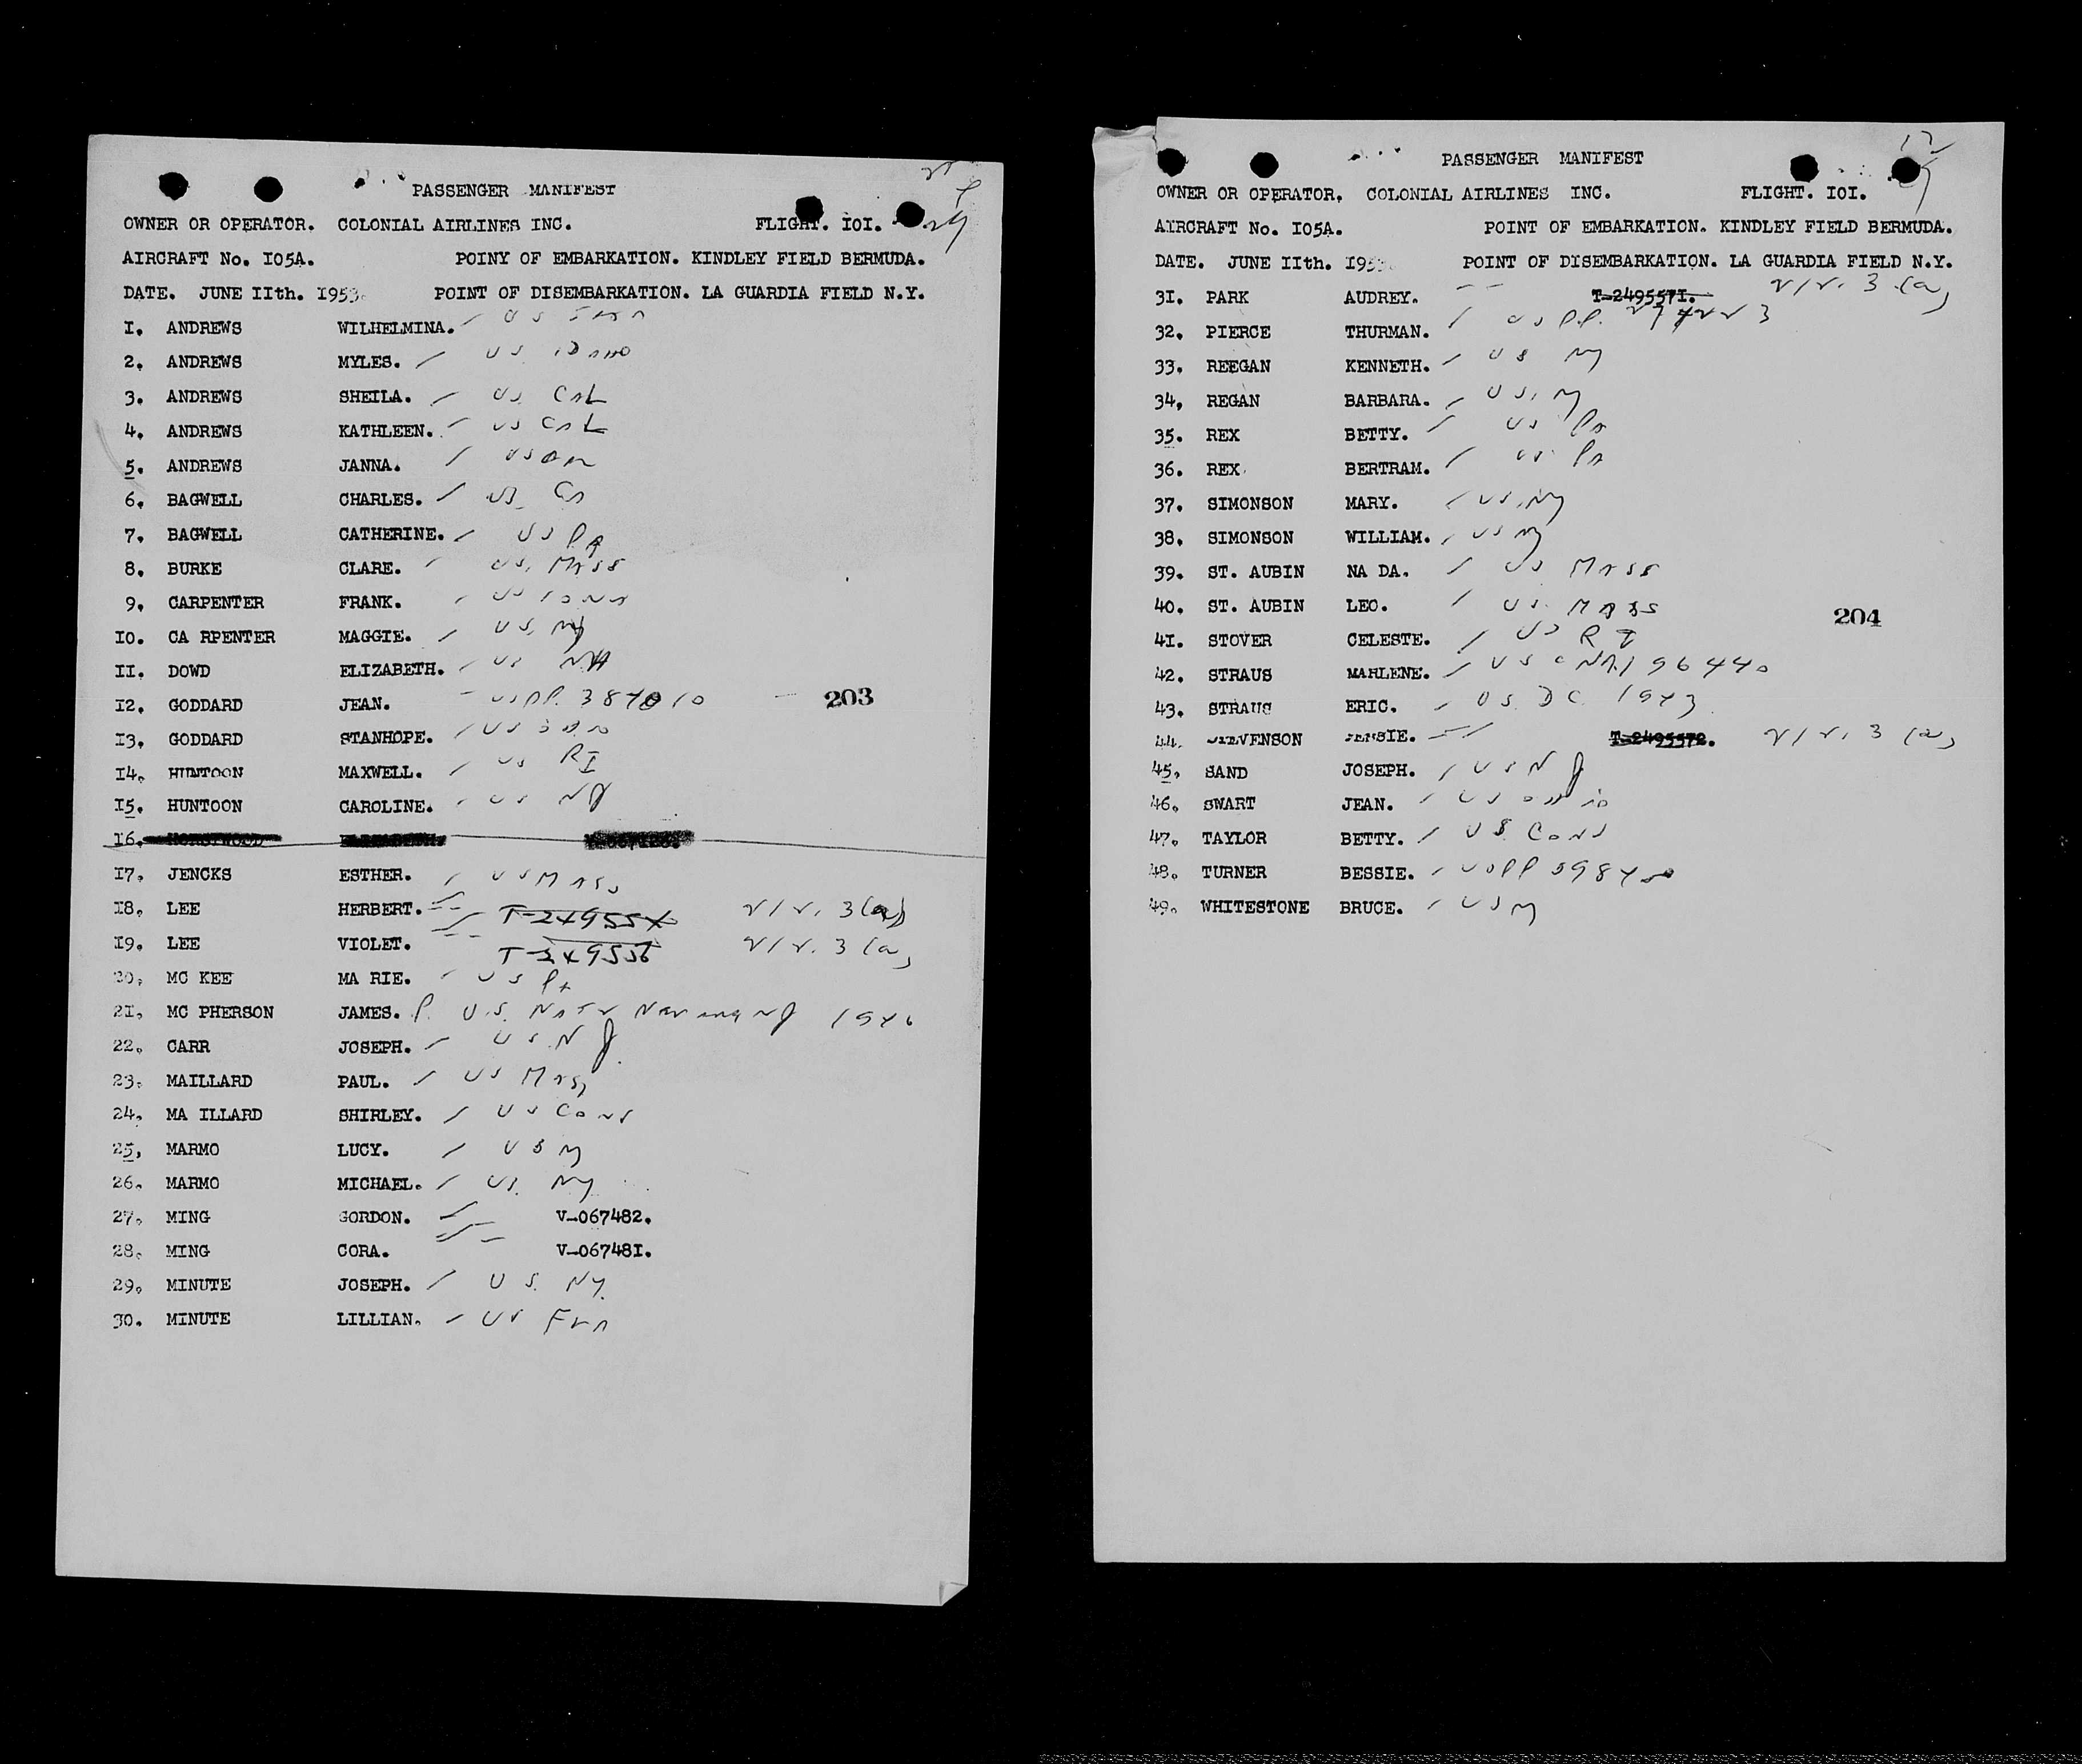 PASSENGER MANIFEST
OWNER OR OPERATOR. COLONIAL AIRLINES INC. FLIGHT. IOI.
AIRCRAFT No. I05A. POINY OF EMBARKATION. KINDLEY FIELD BERMUDA.
DATE. JUNE IIth. I953. POINT OF DISEMBARKATION. LA GUARDIA FIELD N.Y.
I. ANDREWS WILHELMINA. US
2. ANDREWS MYLES. US IDAHO
3. ANDREWS SHEILA. US CAL
4. ANDREWS KATHLEEN. US CAL
5. ANDREWS JANNA. US
6. BAGWELL CHARLES. US
7. BAGWELL CATHERINE. US PA
8. BURKE CLARE. US. MASS
9. CARPENTER FRANK. US
IO. CA RPENTER MAGGIE. US.
II. DOWD ELIZABETH. US NH
I2. GODDARD JEAN. USPP. 203
I3. GODDARD STANHOPE. US
I4. HUNTOON MAXWELL. US RI
I5. HUNTOON CAROLINE. US NJ
I6.
I7. JENCKS ESTHER. US MASS
I8. LEE HERBERT. 3(a)
I9. LEE VIOLET. T-249556 3(a)
20. MC KEE MA RIE. US PA
2I. MC PHERSON JAMES. P. U.S. NATZ NEWARK NJ 1946
22. CARR JOSEPH. US NJ
23. MAILLARD PAUL. US MASS
24. MA ILLARD SHIRLEY. US CONN
25. MARMO LUCY. US NY
26. MARMO MICHAEL. US. NY
27. MING GORDON. V-067482.
28. MING CORA. V-06748I.
29. MINUTE JOSEPH. US. NY.
30. MINUTE LILLIAN. US FLA
PASSENGER MANIFEST
OWNER OR OPERATOR. COLONIAL AIRLINES INC. FLIGHT. IOI.
AIRCRAFT No. I05A. POINT OF EMBARKATION. KINDLEY FIELD BERMUDA.
DATE. JUNE IIth. I953 POINT OF DISEMBARKATION. LA GUARDIA FIELD N.Y.
3I. PARK AUDREY. T-249557I. 3(a)
32. PIERCE THURMAN. US PP.
33. REEGAN KENNETH. US NY
34. REGAN BARBARA. US. NY
35. REX BETTY. US PA
36. REX BERTRAM. US PA
37. SIMONSON MARY. US. NY
38. SIMONSON WILLIAM. US NY
39. ST. AUBIN NA DA. US MASS
40. ST. AUBIN LEO. US. MASS
204
4I. STOVER CELESTE. US RI
42. STRAUS MARLENE. US
43. STRAUS ERIC. US. DC 1943
44. STEVENSON JESSIE. T-2495572. 3(a)
45. SAND JOSEPH. US NJ
46. SWART JEAN. US OHIO
47. TAYLOR BETTY. US CONN
48. TURNER BESSIE. USPP
49. WHITESTONE BRUCE. US NY